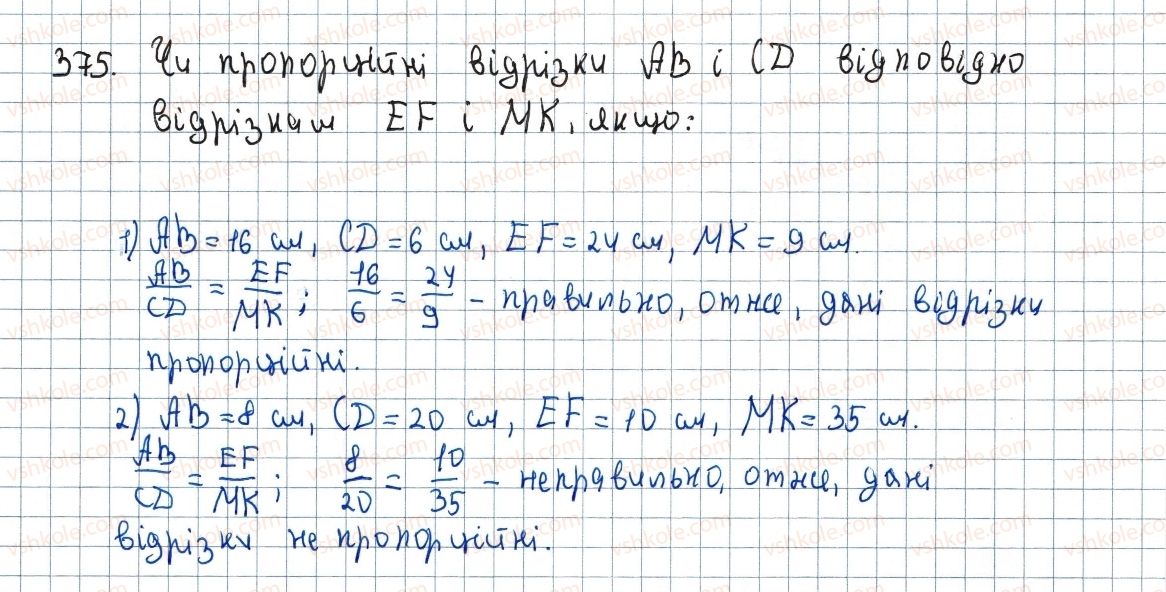 375. Чи пропорційні відрізки AB і CD відповідно
відрізкам EF і MK, якщо:
1) AB = 16 см, CD = 6 см, EF = 24 см, MK = 9 см.
AB/CD = EF/MK; 16/6 = 24/9 – правильно, отже, дані відрізки
пропорційні.
2) AB = 8 см, CD = 20 см, EF = 10 см, MK = 35 см.
AB/CD = EF/MK; 8/20 = 10/35 – неправильно, отже, дані
відрізки не пропорційні.